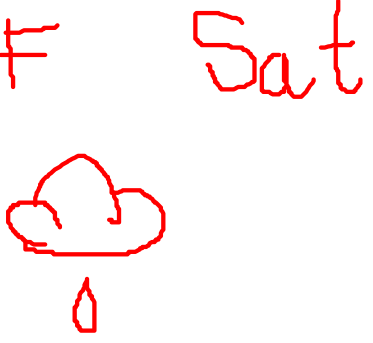 F Sat